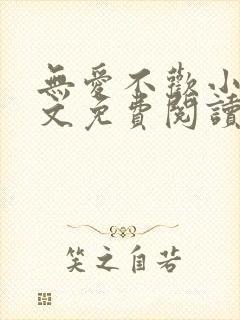 無愛不歡小
文免費閱讀
笑之自若